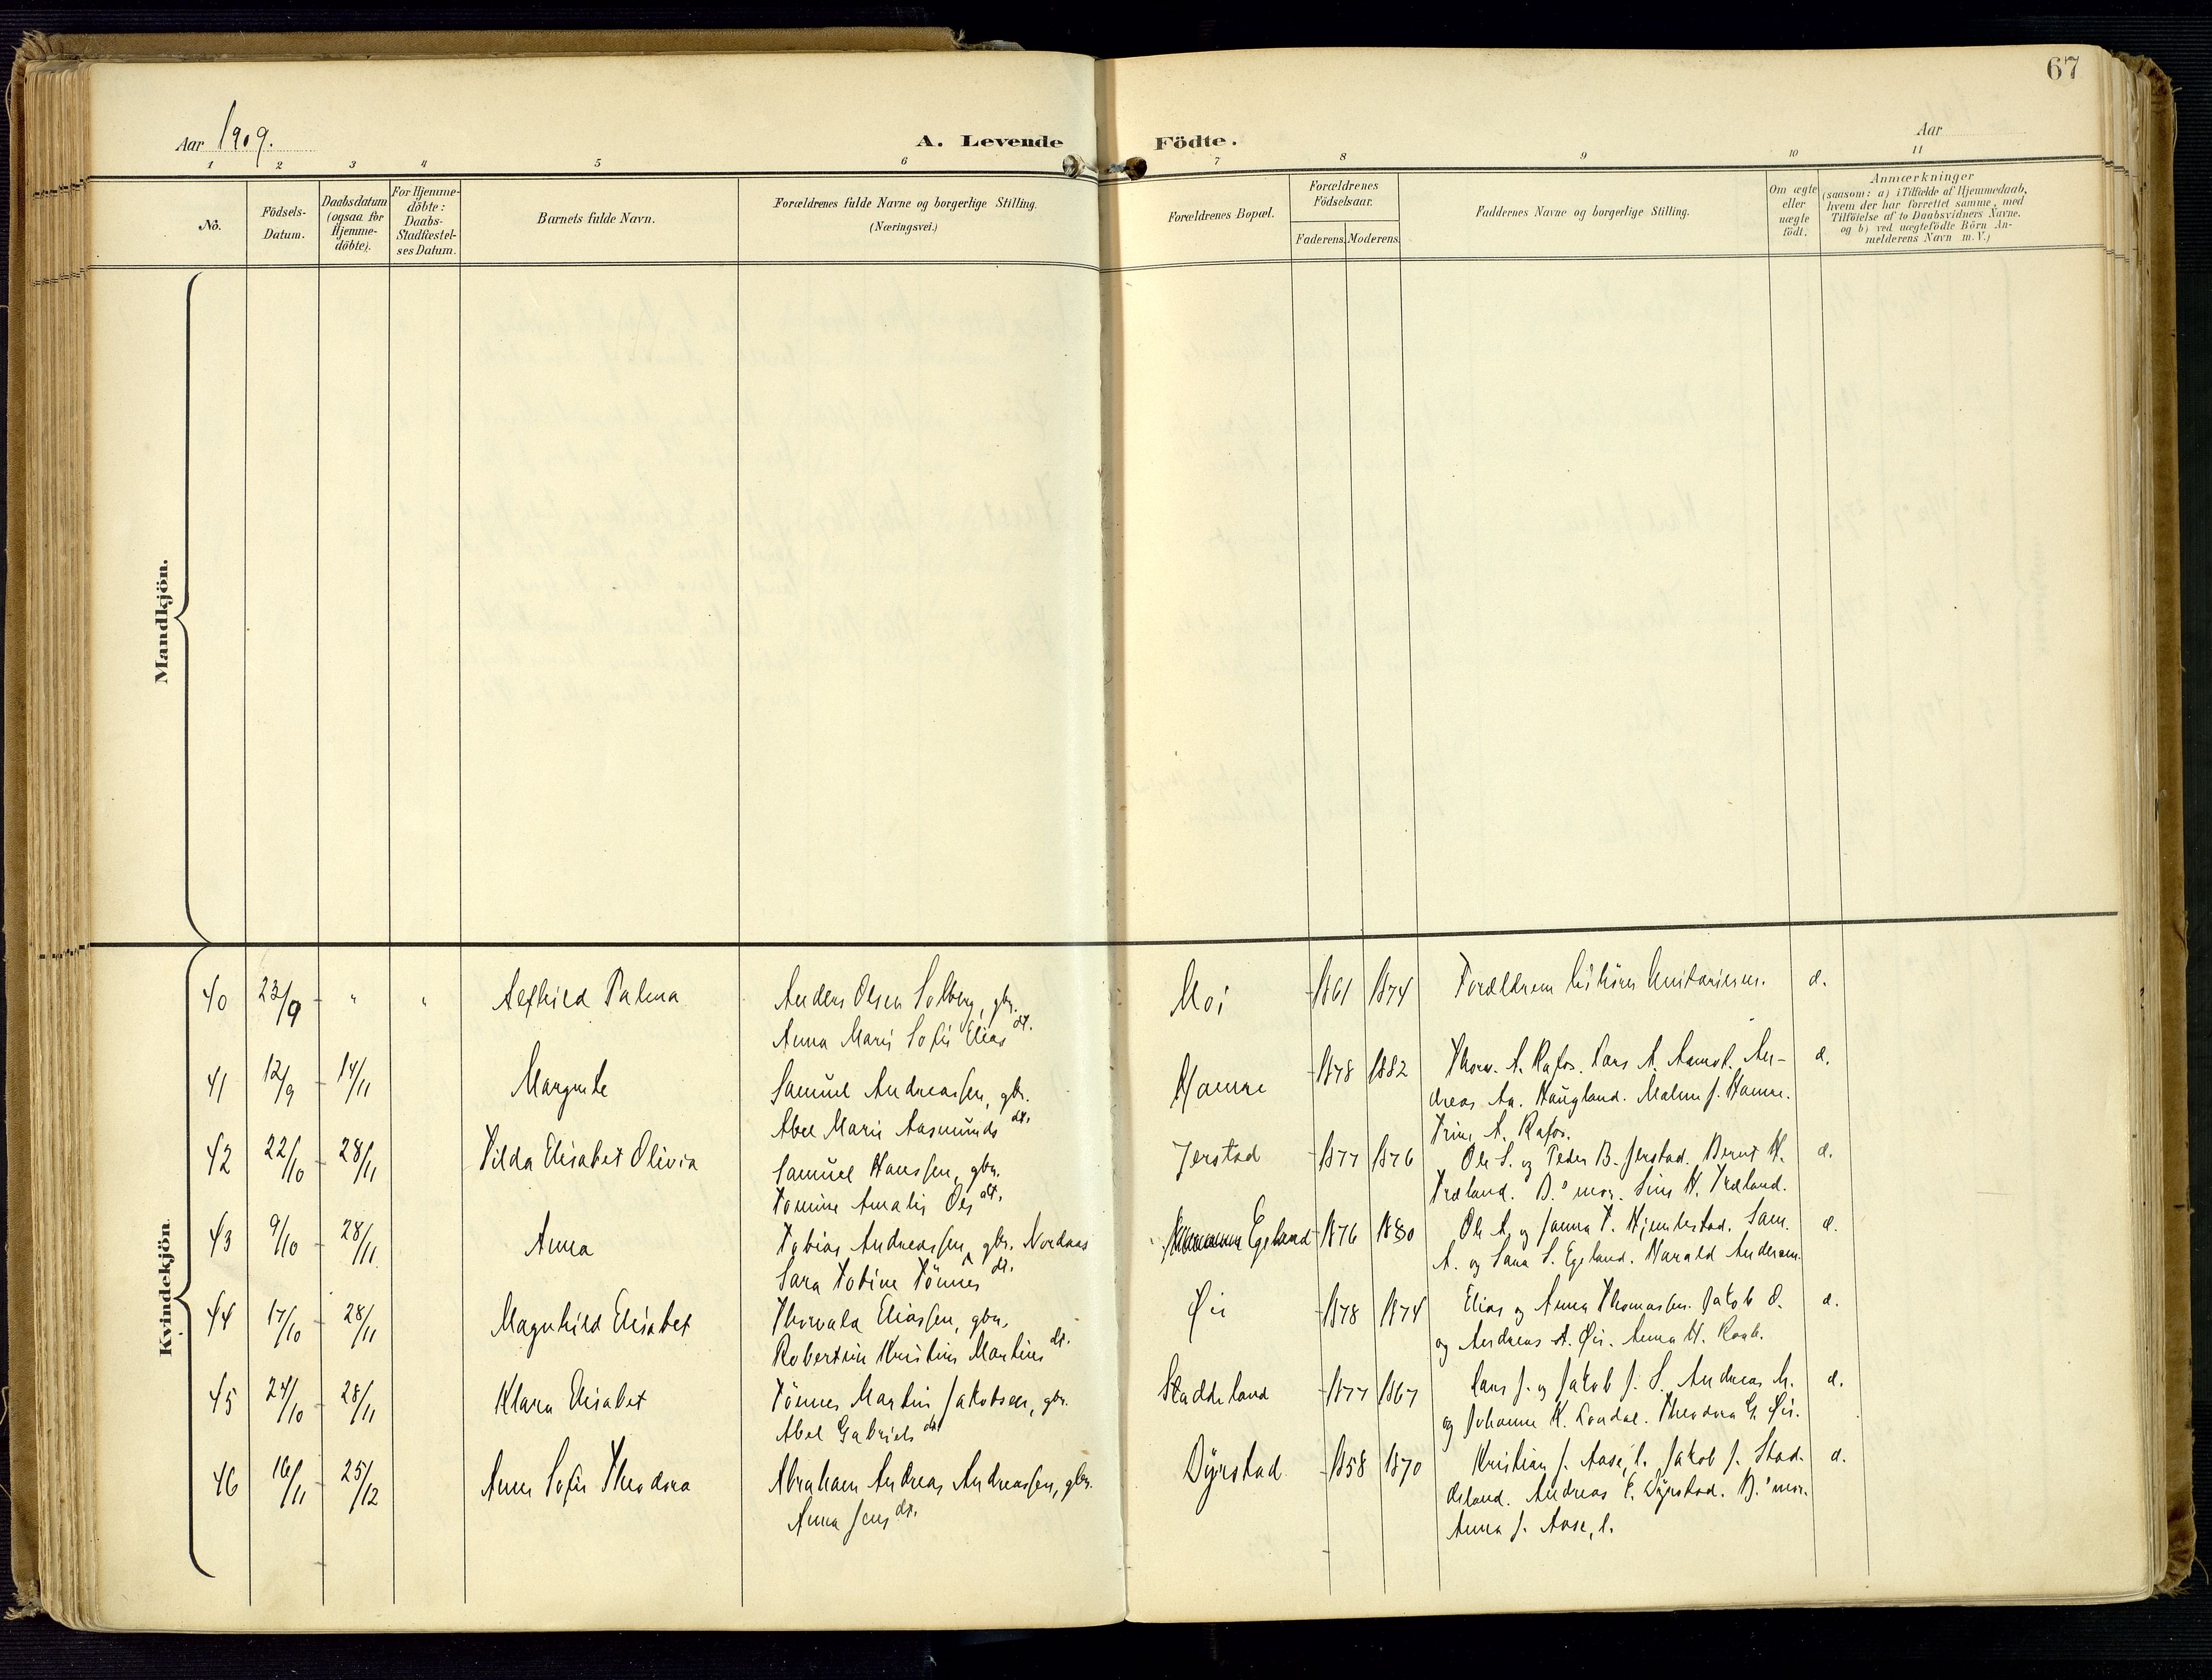 67
Aar 1909.
A. Levende Födte.
Aar
1 2 3 4 5 6 7 8 9 10 11
No.
Födsels-
Datum.
Daabsdatum
(ogsaa for
Hjemme-
döbte).
For Hjemme-
döbte:
Daabs-
Stadfæstel-
ses Datum.
Barnets fulde Navn.
Forældrenes fulde Navne og borgerlige Stilling.
(Næringsvei.)
Forældrenes Bopæl.
Forældrenes
Födselsaar.
Faderens. Moderens.
Faddernes Navne og borgerlige Stilling.
Om ægte
eller
uægte
födt.
Anmærkninger
(saasom: a) i Tilfælde af Hjemmedaab,
hvem der har forrettet samme, med
Tilföielse af to Daabsvidners Navne.
og b) ved uægtefödte Börn An-
melderens Navn m. V.)
Mandkjön.
Kvindekjön.
40 23/9 " " Alfhild Palma Anders Olsen Solberg, gbr. Moi 1861 1874 Forældrene tilhører Unitarierne. æ.
Anna Marie Sofie Elias dt.
41 12/9 14/11 Margrete Samuel Andreassen, gbr. Hamre 1878 1882 Thorv. A. Rafos. Lars A. Aamot. An- æ.
Abel Marie Aasmunds dt. dreas Aa. Haugland. Malene J. Hamre.
Trine A. Rafos.
42 22/10 28/11 Tilda Elisabet Olivia Samuel Hanssen, gbr. Jerstad 1877 1876 Ole S. og Peder B. Jerstad. Bernt H. æ.
Tomine Amalie Ols dt. Træland. B.s mor. Sine H. Træland.
43 9/10 28/11 Anna Tobias Andreassen, gbr. Nordaas Egeland 1876 1880 Ole A. og Janna T. Hjemlestad. Sam. æ.
Sara Tobine Tönnes dt. A. og Sara S. Egeland. Harald Andersen.
44 17/10 28/11 Magnhild Elisabet Thorvald Eliassen, gbr. Øie 1878 1874 Elias og Anna Thomassen. Jakob O. æ.
Robertine Kristine Martins dt. og Andreas A. Øie. Anna H.
45 24/10 28/11 Klara Elisabet Tönnes Martin Jakobsen, gbr. Staddeland 1877 1867 Lars J. og Jakob J. S. Andreas M. æ.
Abel Gabriels dt. og Johanne K. Theodora G. Øie.
46 16/11 25/12 Anna Sofie Theodora Abraham Andreas Andreassen, gbr. Dyrstad 1858 1870 Kristian J. Aase, l. Jakob J. Stad- æ.
Anna Jens dt. deland. Andreas E. Dyrstad. B.s mor.
Anna J. Aase, l.